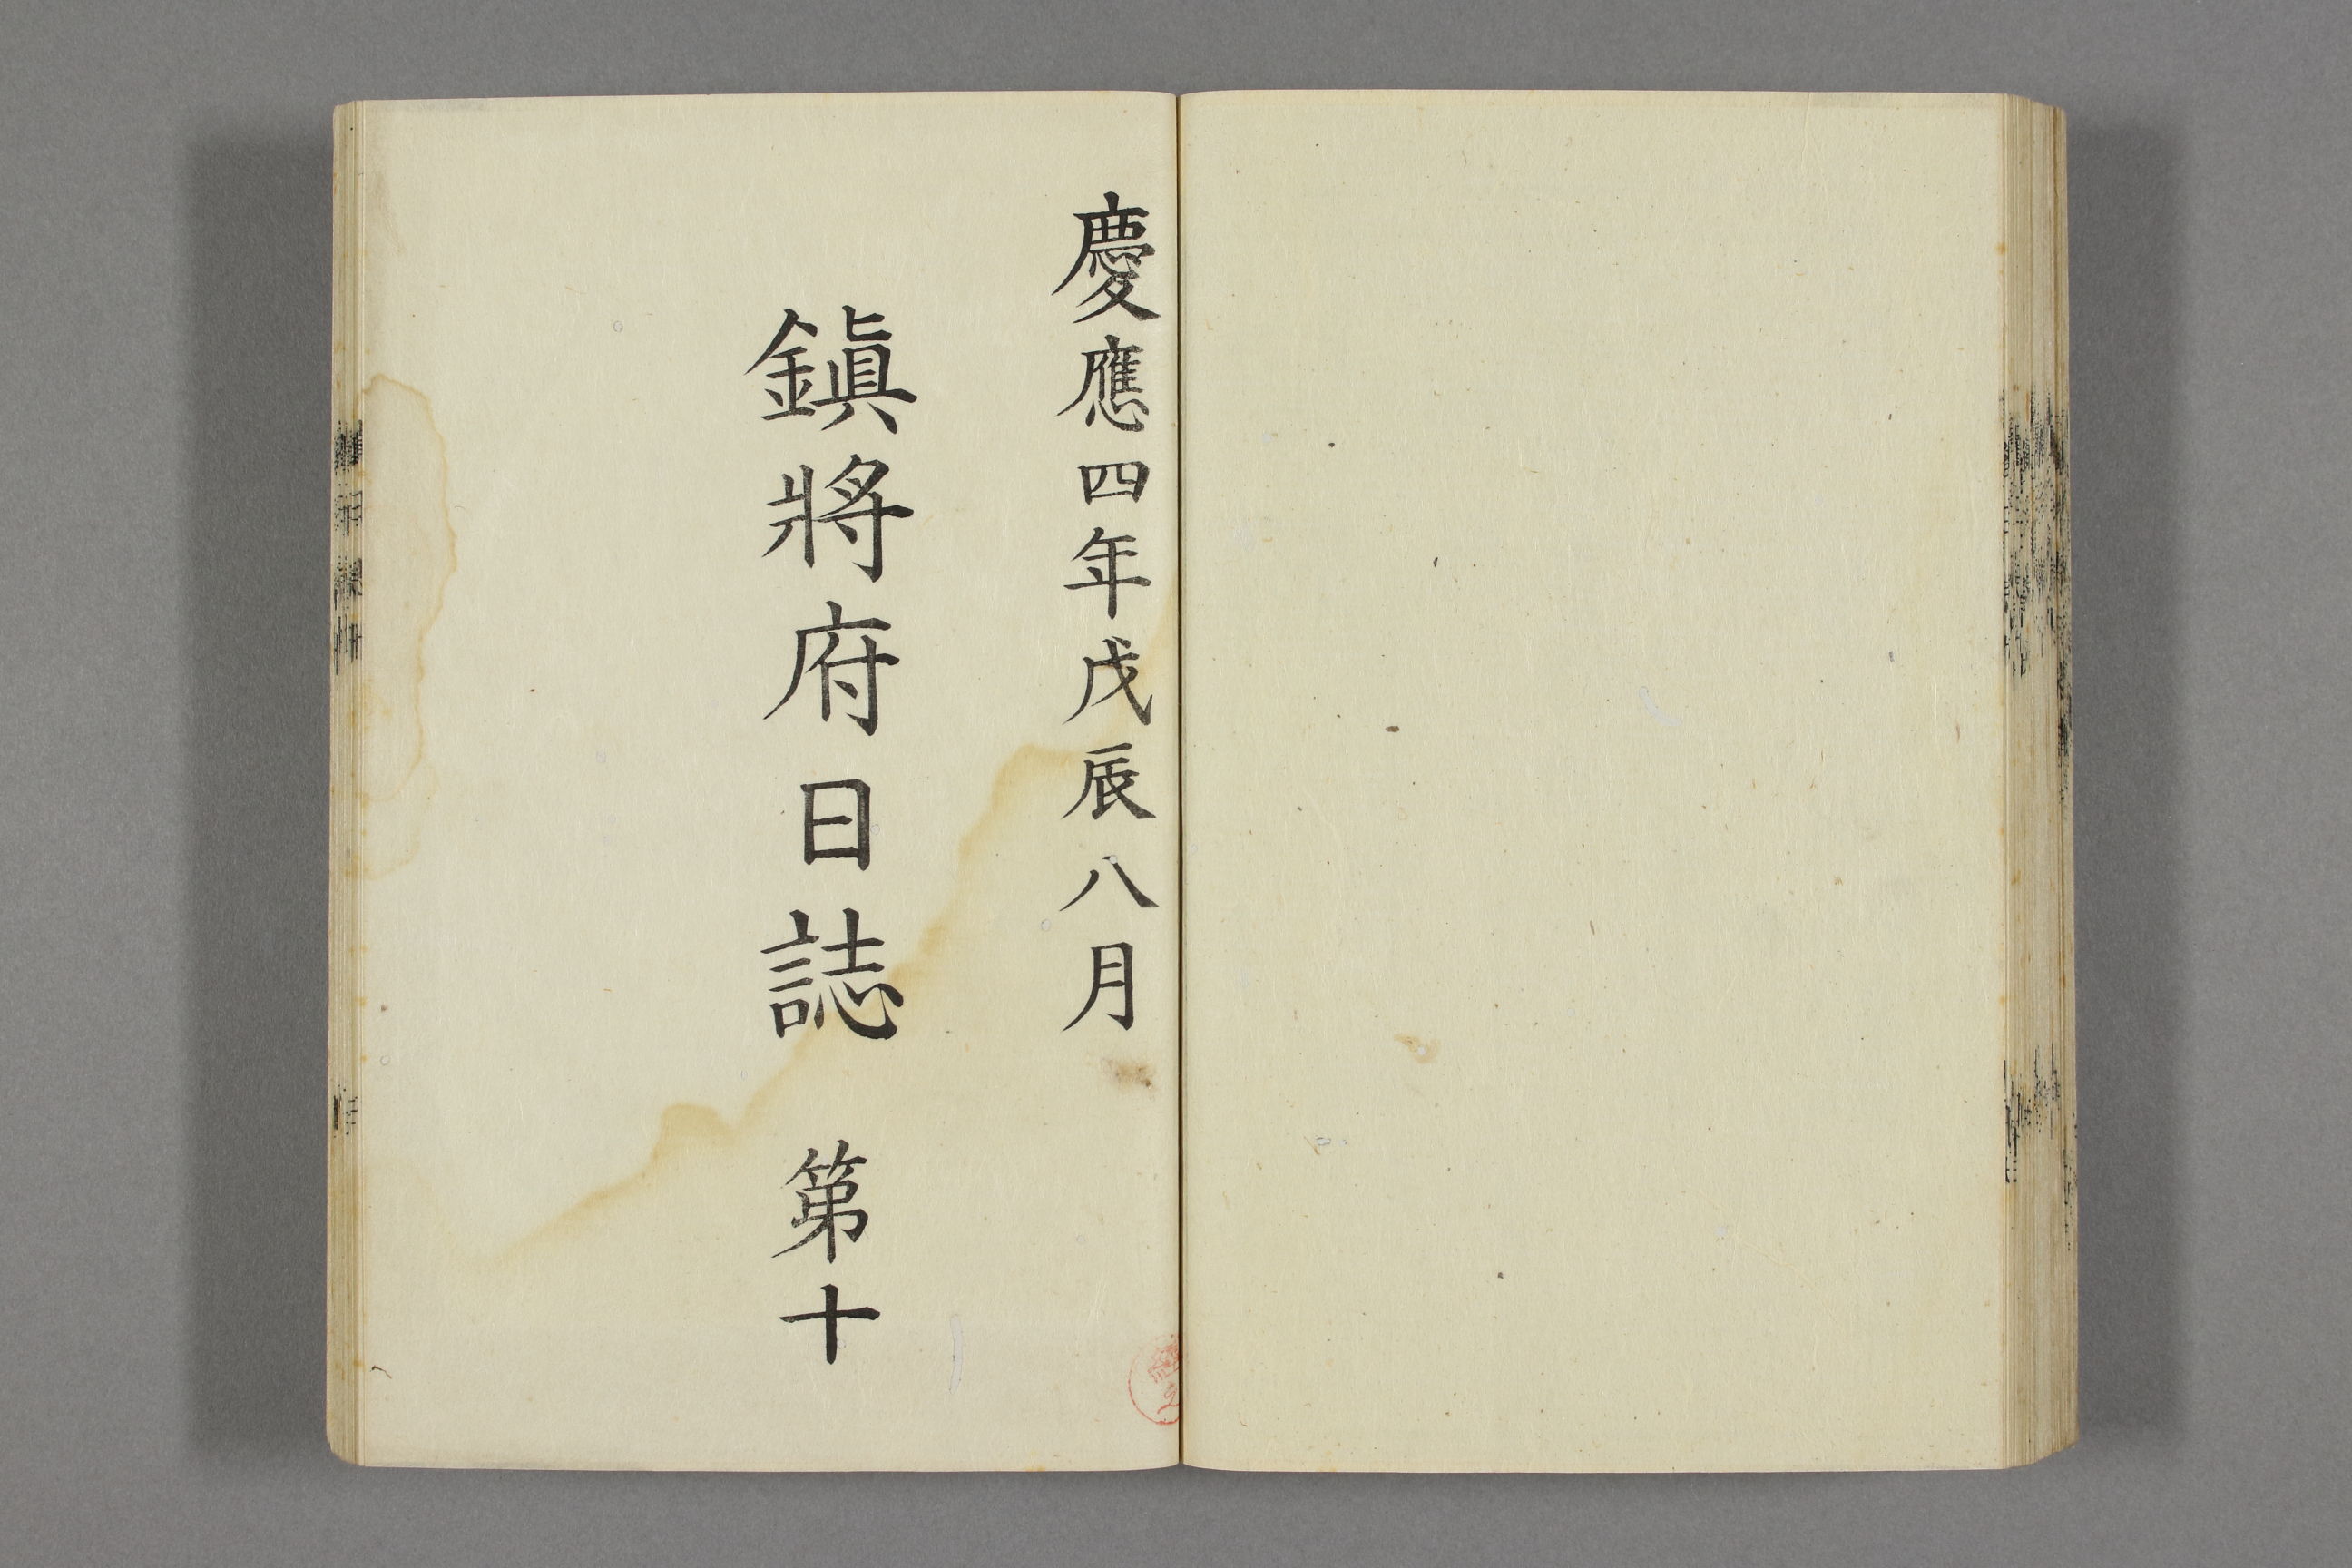 慶應四年戊辰八月
鎭將府日誌 第十